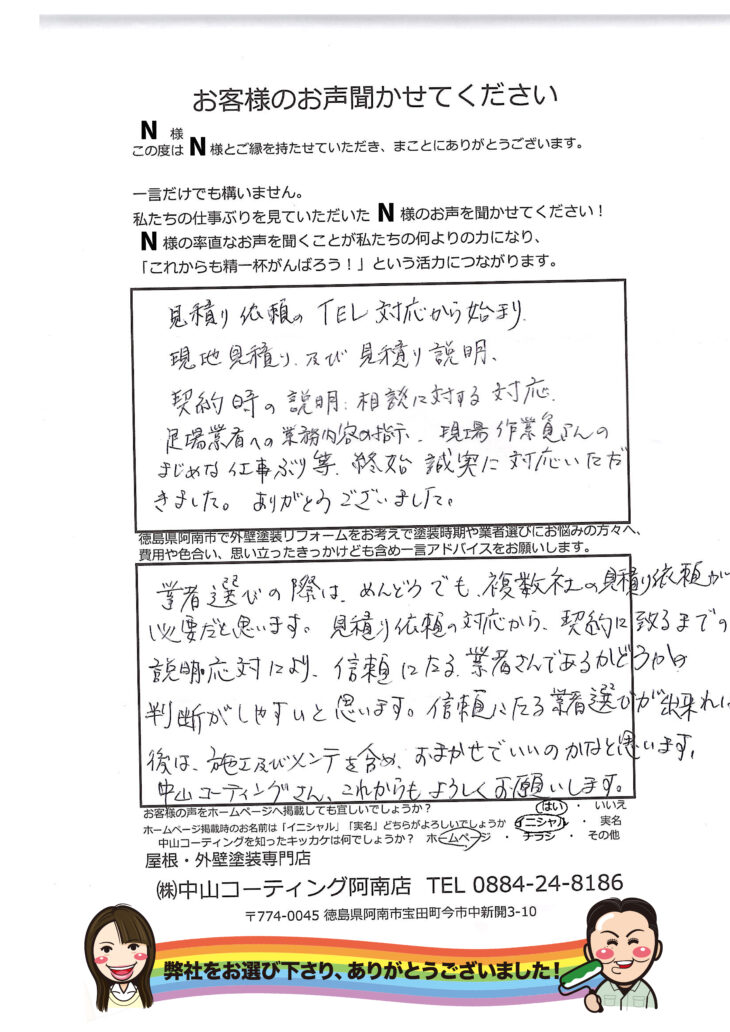 お客様のお声聞かせてください
N 様
この度は N 様とご縁を持たせていただき、まことにありがとうございます。
一言だけでも構いません。
私たちの仕事ぶりを見ていただいた N 様のお声を聞かせてください！
N 様の率直なお声を聞くことが私たちの何よりの力になり、
「これからも精一杯がんばろう！」という活力につながります。
見積り依頼のTEL対応から始まり、
現地見積り、及び見積り説明、
契約時の説明、相談に対する対応、
足場業者への業務内容の指示、現場作業員さんの
まじめな仕事ぶり等、終始誠実に対応いただ
きました。ありがとうございました。
徳島県阿南市で外壁塗装リフォームをお考えで塗装時期や業者選びにお悩みの方々へ、
費用や色合い、思い立ったきっかけども含め一言アドバイスをお願いします。
業者選びの際は、めんどうでも、複数社の見積り依頼が
必要だと思います。見積り依頼の対応から、契約に致るまでの
説明応対により、信頼にたる業者さんであるかどうかの
判断がしやすいと思います。信頼にたる業者選びが出来れば
後は、施工及びメンテを含め、おまかせでいいのかなと思います。
中山コーティングさん、これからもよろしくお願いします。
お客様の声をホームページへ掲載しても宜しいでしょうか？ はい ・ いいえ
ホームページ掲載時のお名前は「イニシャル」「実名」どちらがよろしいでしょうか イニシャル ・ 実名
中山コーティングを知ったキッカケは何でしょうか？ ホームページ ・ チラシ ・ その他
屋根・外壁塗装専門店
㈱中山コーティング阿南店 TEL 0884-24-8186
〒774-0045 徳島県阿南市宝田町今市中新開3-10
弊社をお選び下さり、ありがとうございました！